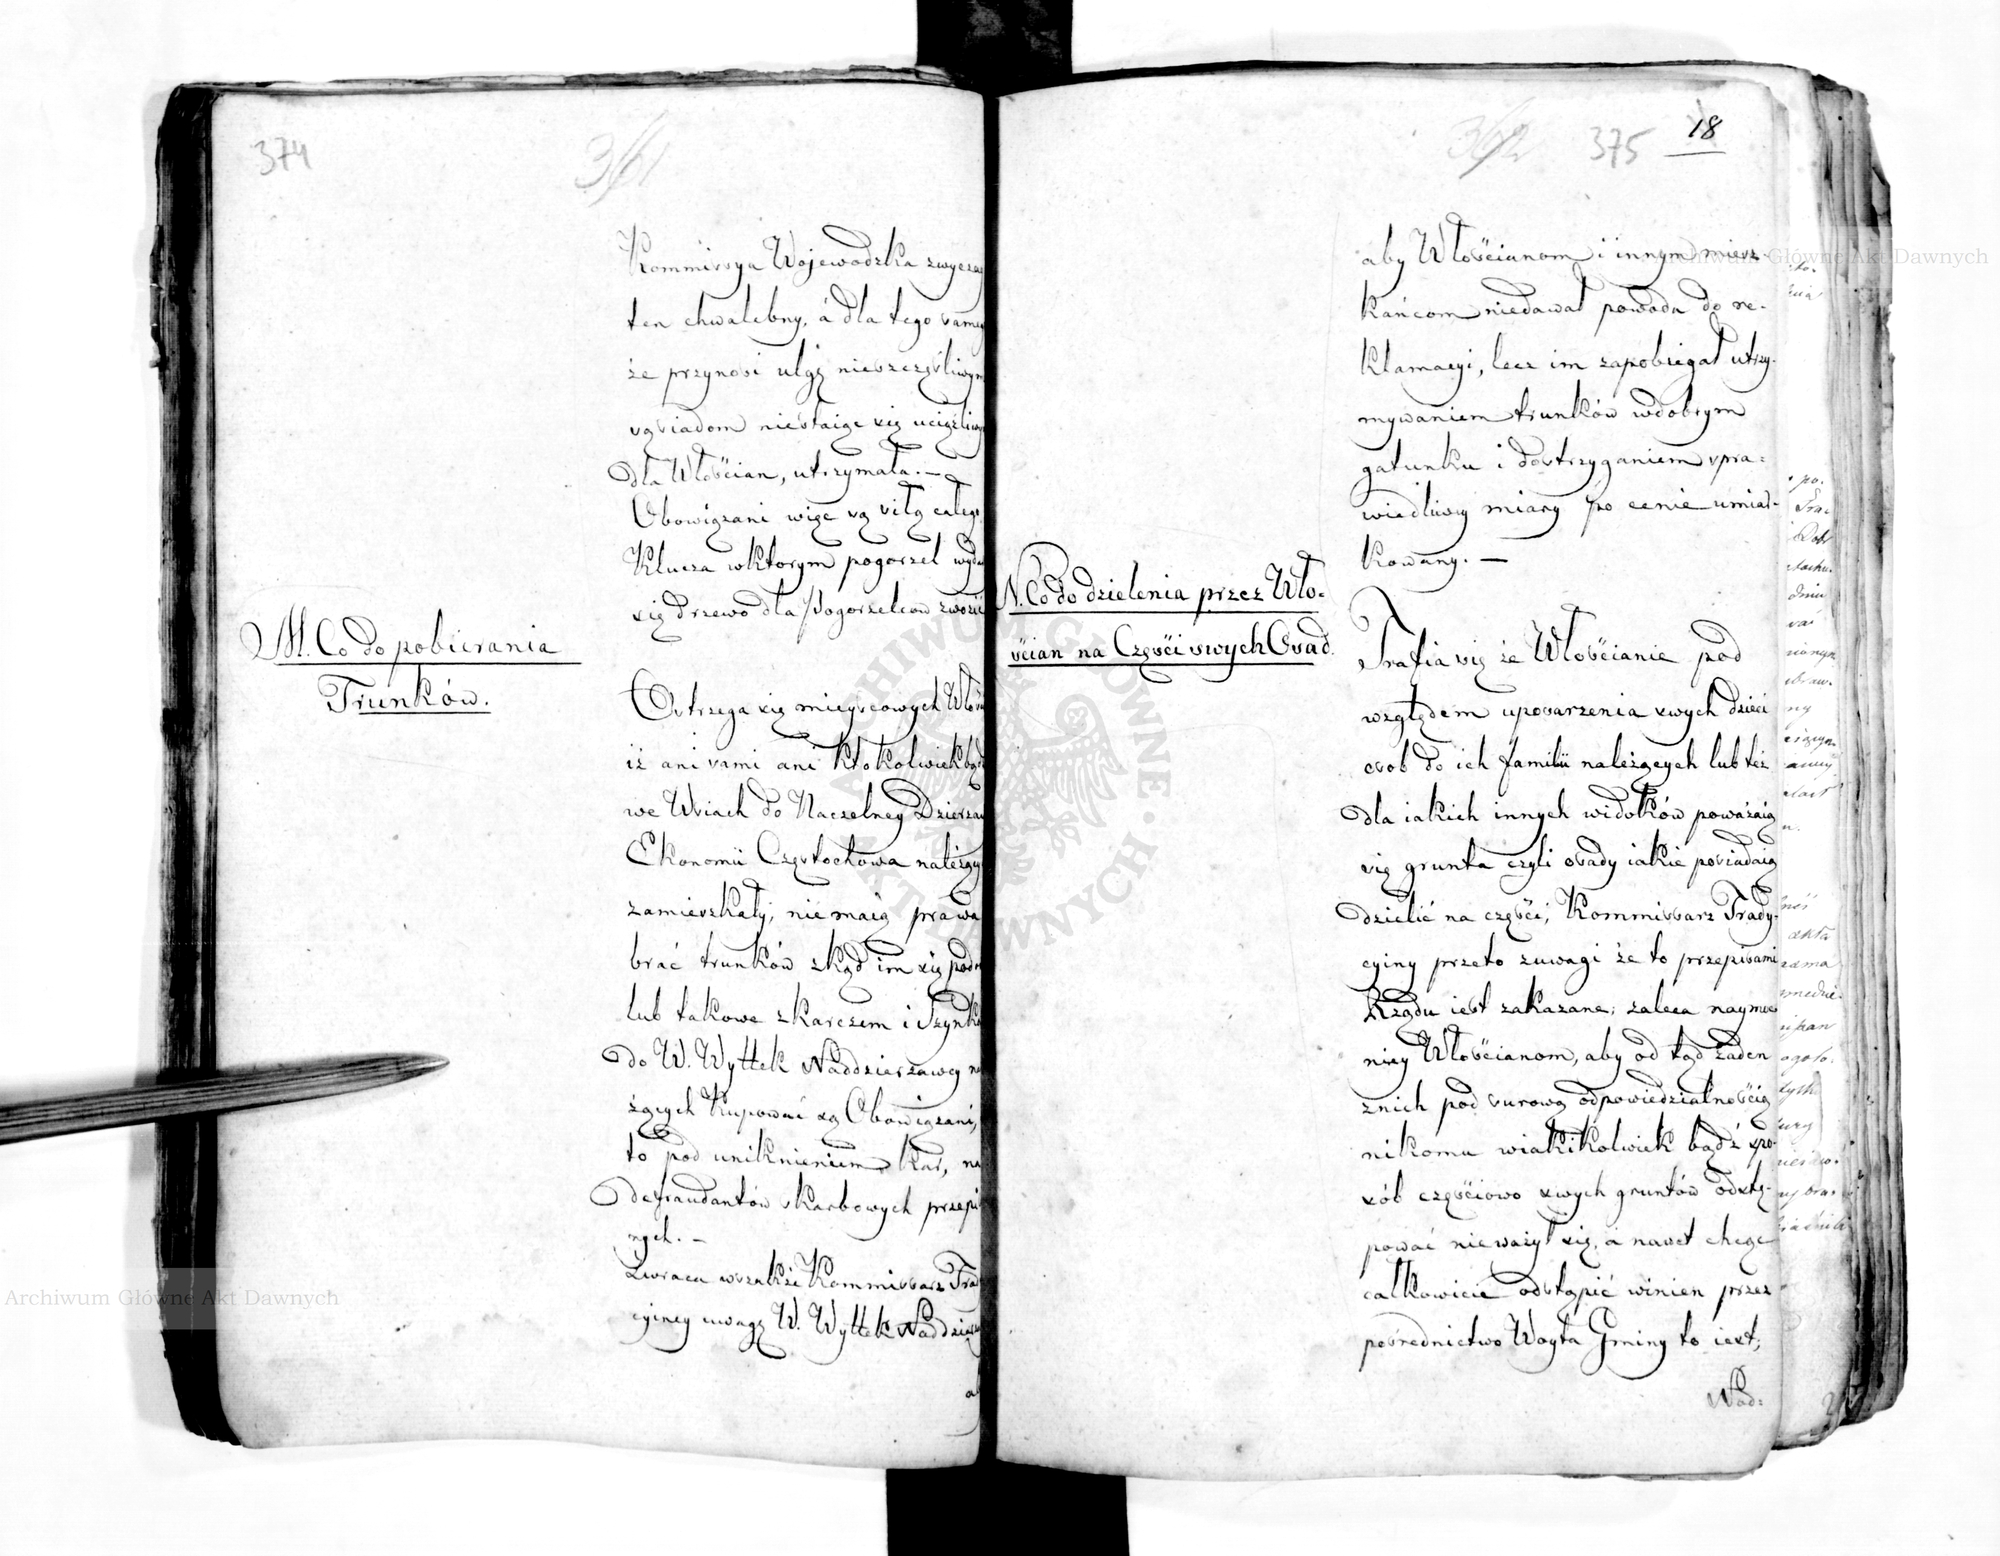 374
361
Kommissya Wojewodzka zwyczay
ten chwalebny, á dla tego samego
że przynosi ulgę nieszczęśliwym
sąsiadom niestaiąc się uciążliwym
dla Włościan, utrzymała. —
Obowiązani więc są siłą całego
Klucza wktorym pogorzel wyda
się Drzewo dla Pogorzelcow zwozić
M. Co do pobierania
Trunków.
Ostrzega się mieyscowych Włości
iż ani sami ani ktokolwiekbądź
we Wsiach do Naczelney Dzierzaw
Ekonomii Częstochowa należący
zamieszkały, nie maią prawa
brać trunków zkąd im się podo
lub takowe z karczem i Szynko
do W. Wyttek Naddzierzawcy na
żących kupować są Obowiązani,
to pod uniknieniem kar, na
defraudantów skarbowych przepi
nych. —
Zwraca wszakże Kommissarz Tra
cyiney uwagę W. Wyttek Naddzierz
ab
362 375 18
aby Włościanom i innym miesz-
kańcom niedawał powodu do re-
klamacyi, lecz im zapobiegał utrzy-
mywaniem trunków wdobrym
gatunku i dostrzyganiem spra-
wiedliwy miary po cenie umiar-
kowany. —
N. Co do dzielenia przez Wło-
ścian na Części swych Osad.
Trafia się że Włościanie pod
względem uposarzenia swych dzieci
osob do ich familii należących lub też
dla iakich innych widoków poważaią
się grunta czyli osady iakie posiadaią
dzielić na części; Kommissarz Trady-
cyiny przeto zuwagi że to przepisami
Rządu iest zakazane; zaleca naymoc
niey Włościanom, aby od tąd żaden
znich pod surową odpowiedzialnością
nikomu wiakikolwiek bądź spo-
sób częściowo swych gruntów odstę-
pować nieważył się, a nawet chcąc
całkowicie odstąpić winien przez
pośrednictwo Woyta Gminy to iest;
Nad-